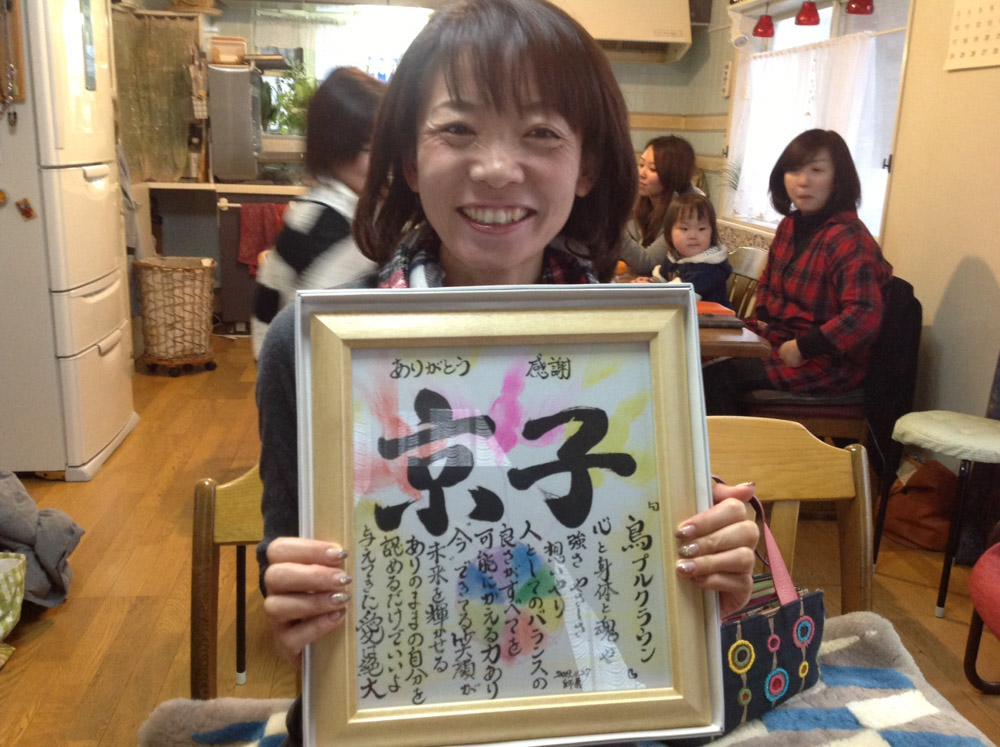 ありがとう 感謝
京子
『鳥プルクラウン』
心と身体と魂や
強さ やさしさ
想いやり
人としてのバランスの
良さがすべてを
可能にかえる力あり
今できてる笑顔が
未来を輝かせる
ありのままの自分を
認めるだけでいいよ
与えてきた愛は絶大